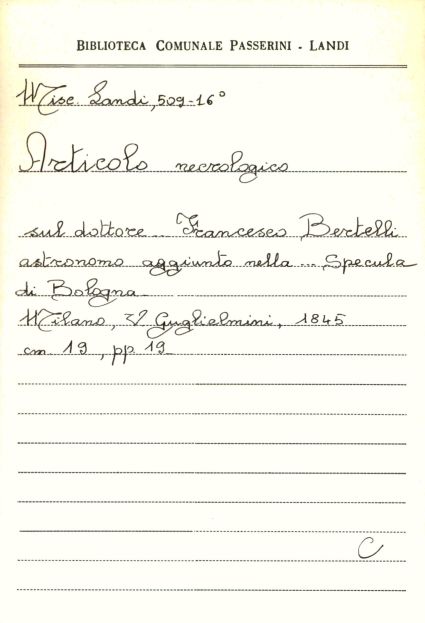 BIBLIOTECA COMUNALE PASSERINI - LANDI
Misc. Landi, 509-16°
Articolo necrologico
sul dottore ... Francesco Bertelli
astronomo aggiunto nella ... Specula
di Bologna
Milano, V Guglielmini, 1845
cm 19, pp 19
C